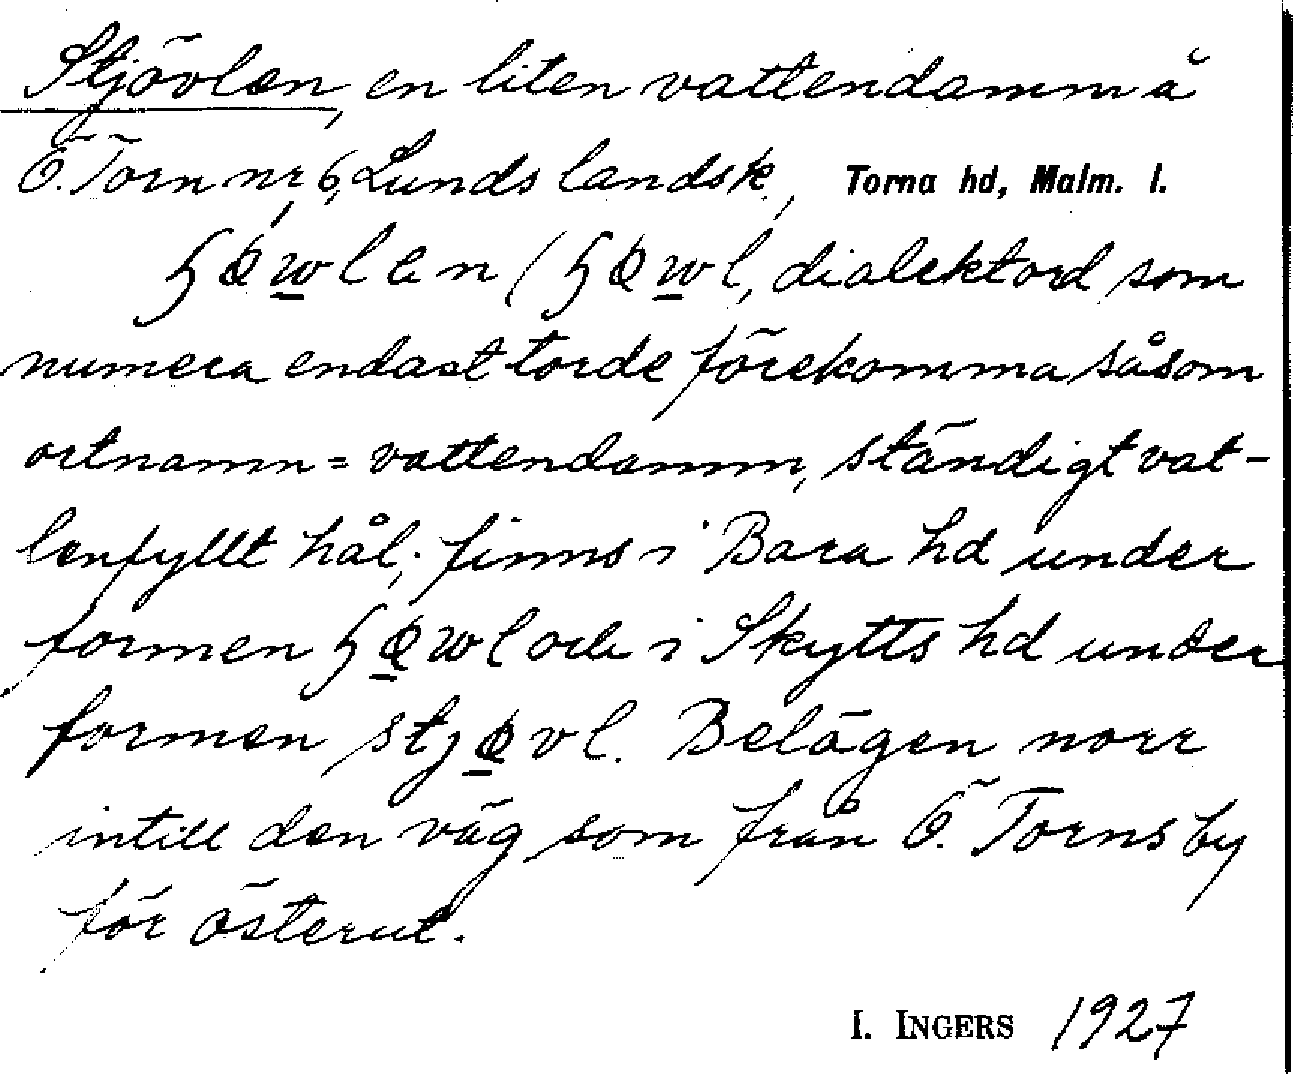 Stjövlen, en liten vattendamm å
Ö. Torn nr 6, Lunds landsk., Torna hd, Malm. l.
ɧøwlen (ɧøwl, dialektord som
numera endast torde förekomma såsom
ortnamn = vattendamm, ständigt vat-
tenfyllt hål; finns i Bara hd under
formen ɧøwl och i Skytts hd under
formen stjøvl. Belägen norr
intill den väg som från Ö. Torns by
för österut.
I. INGERS 1927